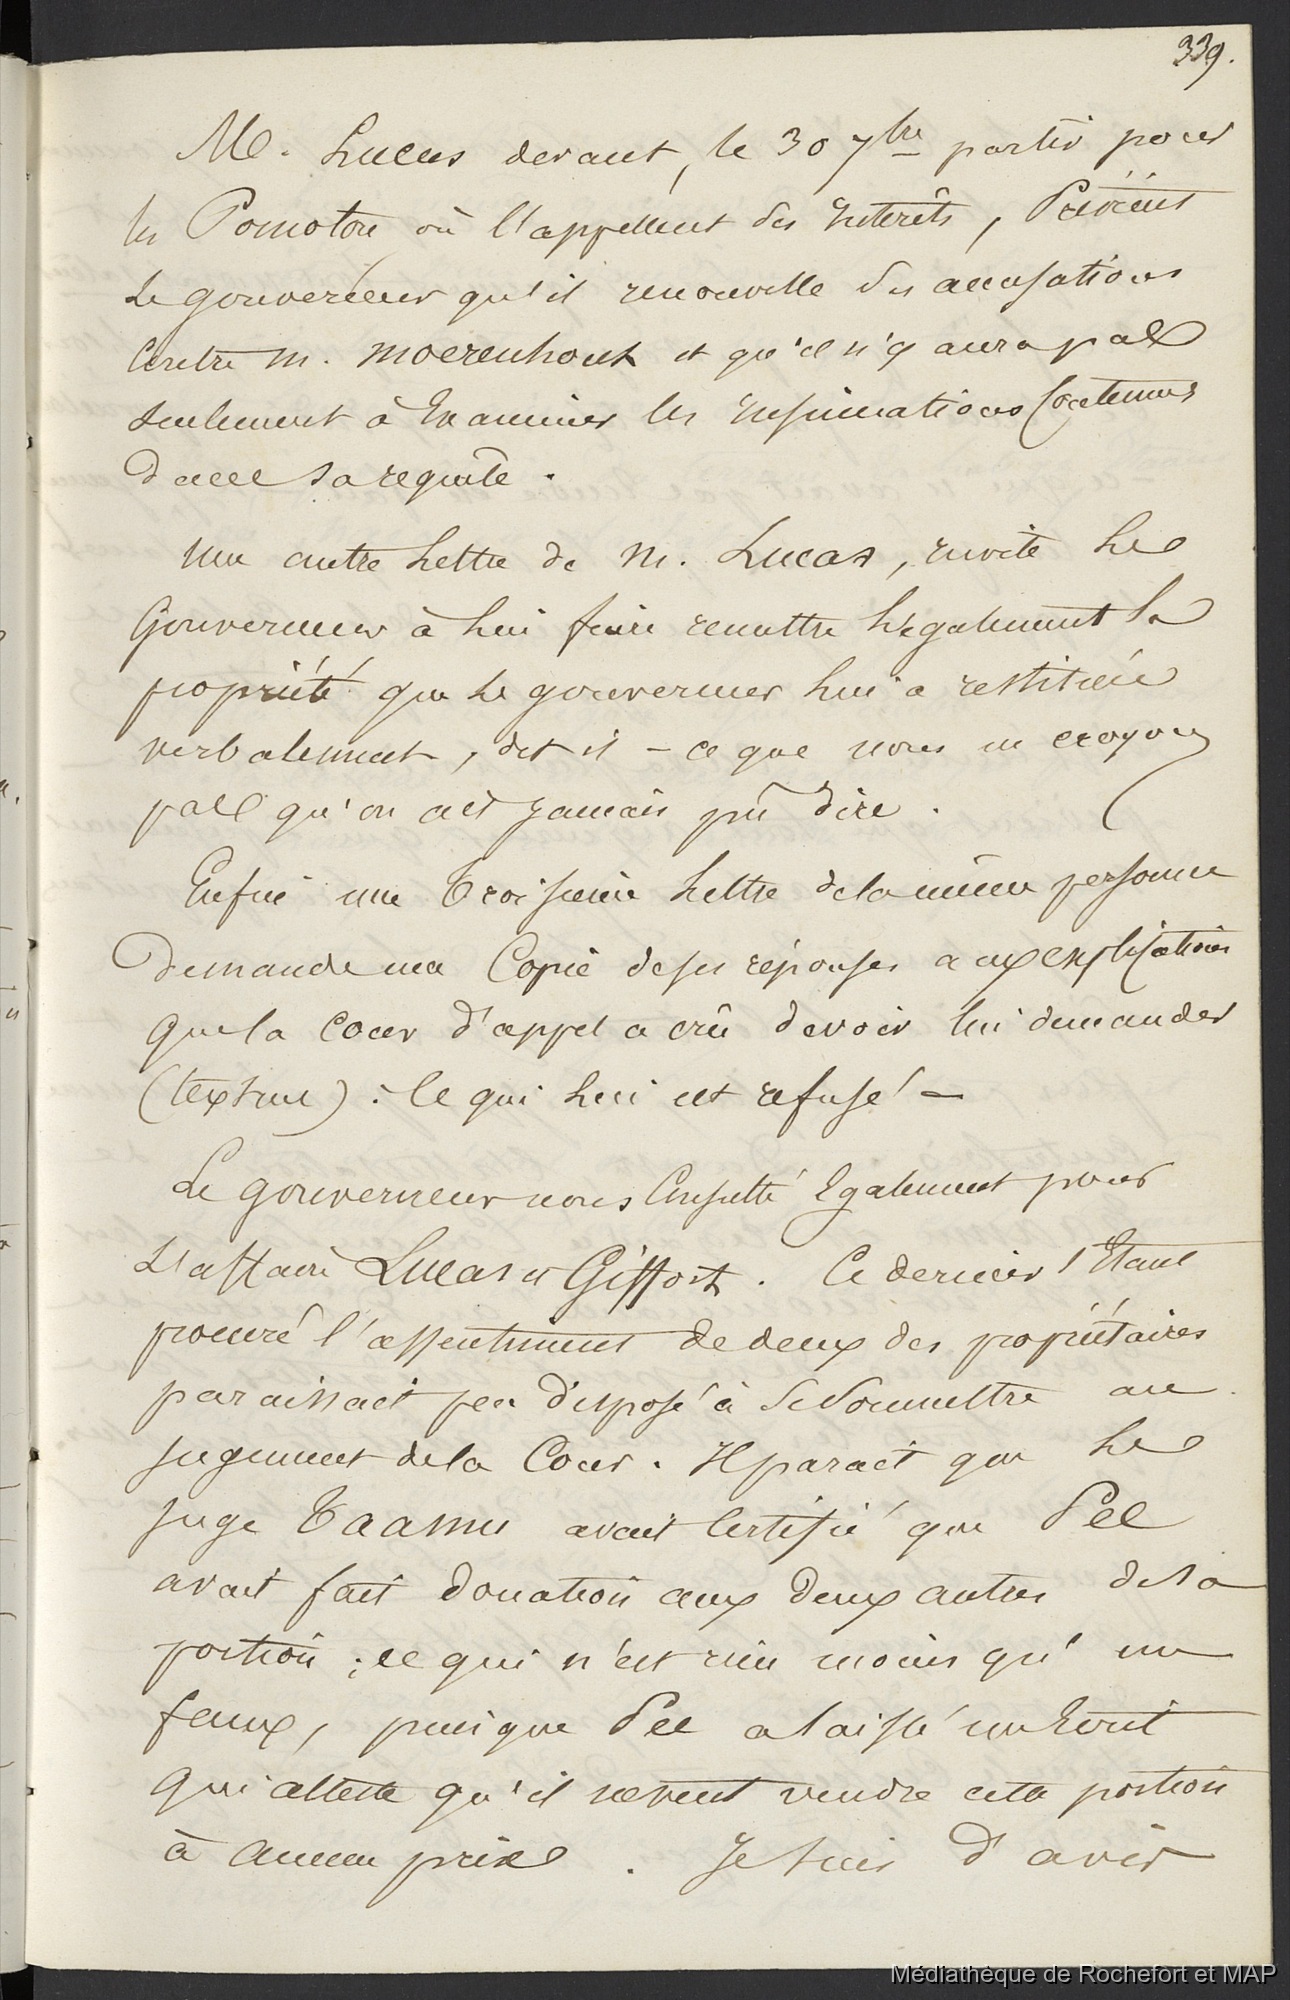 339.
M. Lucas devant, le 30 7bre partir pour
les Pomotou où l'appellent des Interêts, Prévient
Le gouverneur qu'il renouvelle des accusations
Contre M. Moerenhout et qu'il n'y aura pas
seulement à Examiner les Insinuations Contenues
Dans sa requête.
Une autre Lettre de M. Lucas, invite Le
Gouverneur à Lui faire remettre Légalement la
propriété que Le gouverneur Lui a restituée
verbalement, dit il - ce que nous ne croyons
pas qu'on ait Jamais pû dire.
Enfin une Troisième Lettre de la même personne
Demande une Copie de ses réponses aux explications
que la Cour d'appel a crû devoir lui demander
(textuel) : Ce qui Lui est refusé -
Le gouverneur nous Consulte Egalement pour
L'affaire Lucas et Giffort. Ce dernier s'Etant
procuré l'assentiment de deux des propriétaires
paraissait peu disposé à Se Soumettre au
Jugement de la Cour. Il parait que Le
Juge Taamu avait Certifié que Pee
avait fait donation aux Deux autres de sa
portion ; ce qui n'est rien moins qu'un
faux, puisque Pee a laissé un Ecrit
qui atteste qu'il ne veut vendre cette portion
à aucun prix. Je Suis D'avis
Médiathèque de Rochefort et MAP